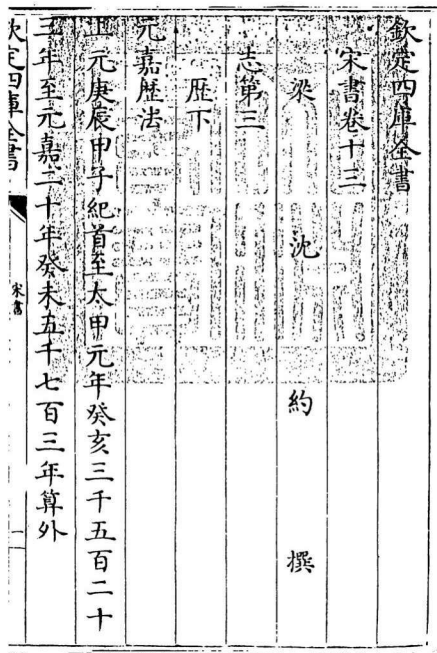 欽定四庫全書
宋書卷十三
梁沈約撰
志第三
厯下
元嘉厯法
上元庚辰甲子紀首至太甲元年癸亥三千五百二十
三年至元嘉二十年癸未五千七百三年算外
欽定四庫全書
宋書
一